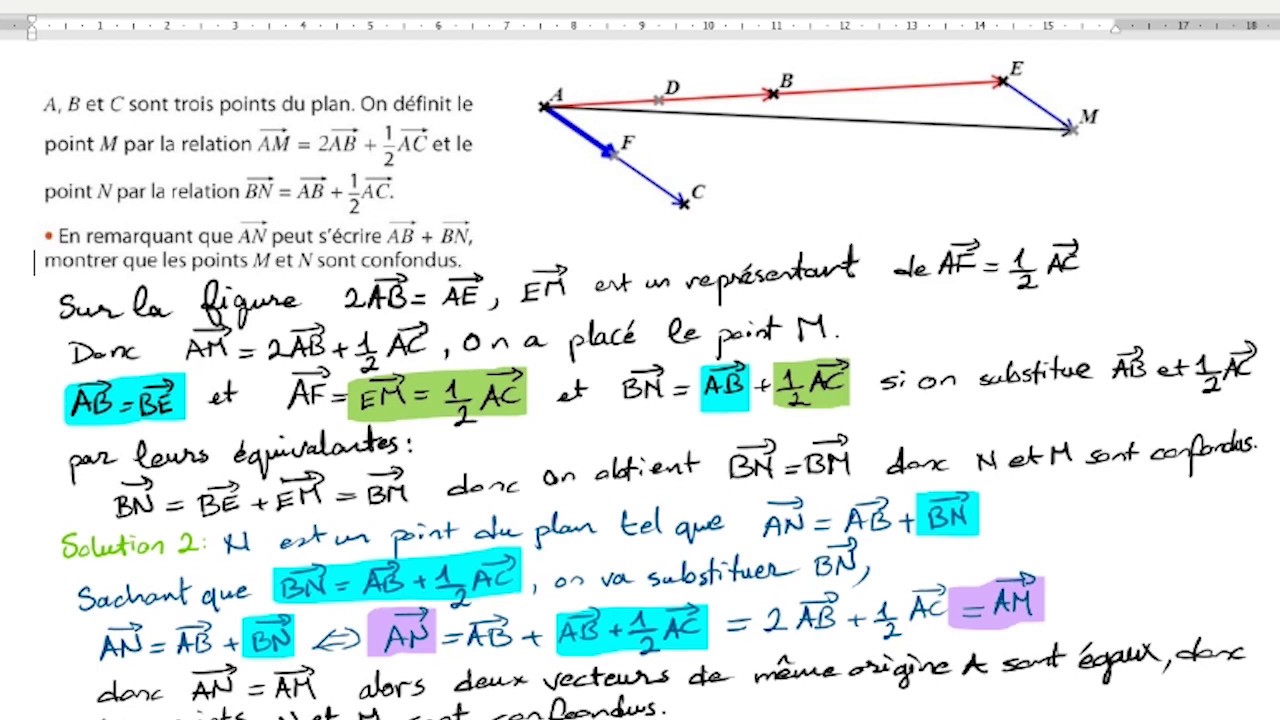 1 2 3 4 5 6 7 8 9 10 11 12 13 14 15 17 18
A D B E M F C
A, B et C sont trois points du plan. On définit le
point M par la relation AM⃗ = 2AB⃗ + 1/2 AC⃗ et le
point N par la relation BN⃗ = AB⃗ + 1/2 AC⃗.
• En remarquant que AN⃗ peut s'écrire AB⃗ + BN⃗,
montrer que les points M et N sont confondus.
Sur la figure 2AB⃗ = AE⃗, EM⃗ est un représentant de AF⃗ = 1/2 AC⃗
Donc AM⃗ = 2AB⃗ + 1/2 AC⃗, On a placé le point M.
AB⃗ = BE⃗ et AF⃗ = EM⃗ = 1/2 AC⃗ et BN⃗ = AB⃗ + 1/2 AC⃗ si on substitue AB⃗ et 1/2 AC⃗
par leurs équivalantes :
BN⃗ = BE⃗ + EM⃗ = BM⃗ donc on obtient BN⃗ = BM⃗ donc N et M sont confondus.
Solution 2 : N est un point du plan tel que AN⃗ = AB⃗ + BN⃗
Sachant que BN⃗ = AB⃗ + 1/2 AC⃗, on va substituer BN⃗,
AN⃗ = AB⃗ + BN⃗ ⇔ AN⃗ = AB⃗ + AB⃗ + 1/2 AC⃗ = 2 AB⃗ + 1/2 AC⃗ = AM⃗
donc AN⃗ = AM⃗ alors deux vecteurs de même origine A sont égaux, donc
N et M sont confondus.